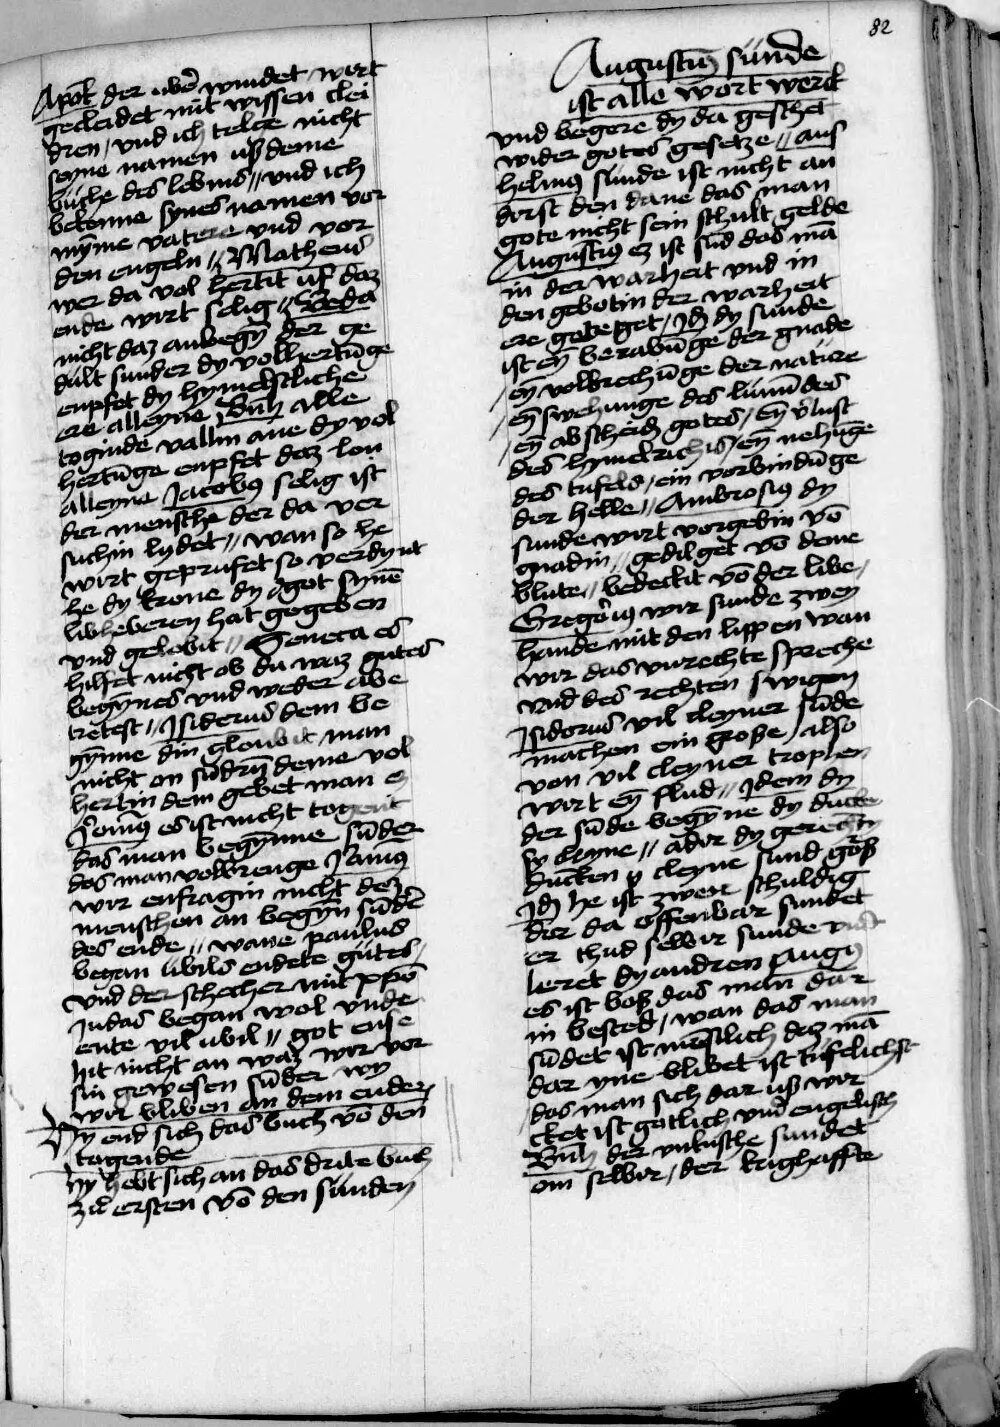 82
Apoc̄ der ubē windet wirt
gecleidet mit wissen clei
dren / und ich telge nicht
seyne namen uß deme
buche des lebins // und ich
bekenne synes namen vor
mȳme vatere und vor
den engeln // Matheus
wer da vol hertit uf daz
ende wirt selig // Beda
nicht daz anbegȳ der ge
dult sunder dy volhertūge
enpfet dy hymelscliche
ere alleyne Bern̄ alle
toginde vallin ane dy vol
hertūge enpfet daz lon
alleyne Jacobꝰ selig ist
der mensche der da ver
suchin lydet // wan so he
wirt geprufet so verdynt
he dy krone dy got synē
libheberen hat gegeben
und gelobit // Seneca es
hilfet nicht ob du waz gutes
begȳnes und weder abe
tretest // Isiderus dem be
gȳnne din gloubit man
nicht on sūdrn̄ deme vol
hertin dem gebet man eȳ
Jeronīꝰ es ist nicht togent
das man begȳnne sūder
das man volbrenge Idemꝰ
wir enfragin nicht dez
menschen an begȳn sūdē
des ende // wane paulus
began ubils endete gutes /
und der schecher mit xpō
Judas began wol unde
ente vil ubil // got ense
hit nicht an waz wir vor
sin gewesen sūder wy
wir bliben an dem ender /
Hy end sich das buch vō den
togende
Hy hebt sich an das drite buch
zū ersten vō den sunden
Augustinꝰ sünde
ist alle wort werck
und begere dy da geschet
wider gotes gesetze // Ans
helmꝰ sunde ist nicht an
dorst den dane das man
gote nicht sein schult gelde
Augustīꝰ eȥ ist sūd das mā
in der warheit und in
den gebotin der warheit
ere gebeget / Idē dy sunde
ist eȳ berabūge der gnade
/ eȳ volbrechūge der nature
/ eȳ swechunge des lumūdes
/ eȳ abscheidē gotes / eȳ v̄lust
des hymelrichis / eȳ nehūge
des tufels / ein vorbindūge
der helle // Ambrosiꝰ dy
sunde wirt vorgebin vō
gnadin // gedilget vō deme
blute // bedeckit vō der libe /
Gregōriꝰ wir sunde zwey
hande mit den lippen wan
wir das unrechte spreche
und des rechten swigen
Isidorus vil cleyner sūde
machen ein große / also
von vil cleyner tropfen
wirt eȳ flud // Idem dy
der sūde begȳne dy ducke
sy cleyne // ader dy gerechtȳ
ducken y cleyne sund groß
Idē he ist zweir schuldig
der da offenbar sundet
er thud selbir sunde und
leret dy andren Augꝰ
es ist boß das man dar
in bested / wan das man
sūdet ist mēslich daz mā
dar yne blibet ist tufelichst
/ das man sich dar uß wir
cket ist gotlich und engelisch
Bern̄ der unkusche sundet
om selbir / der krighaffte